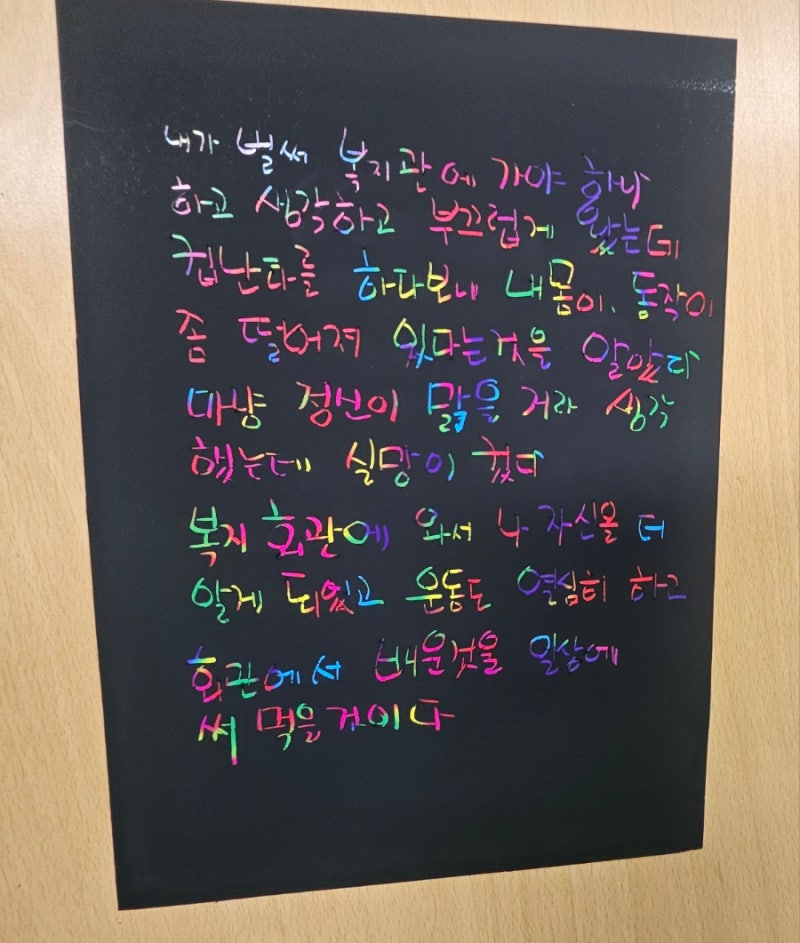 내가 벌써 복지관에 가야 하나
하고 생각하고 부끄럽게 왔는데
컵난타를 하다보니 내몸이. 동작이
좀 떨어져 있다는것을 알았다
마냥 정신이 맑을 거라 생각
했는데 실망이 컸다
복지 회관에 와서 나 자신을 더
알게 되었고 운동도 열심히 하고
회관에서 배운것을 일상에
써 먹을것이다